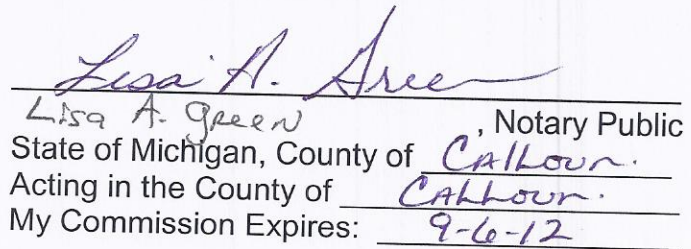 Lisa A. Green
Lisa A. Green, Notary Public
State of Michigan, County of Calhoun.
Acting in the County of Calhoun.
My Commission Expires: 9-6-12